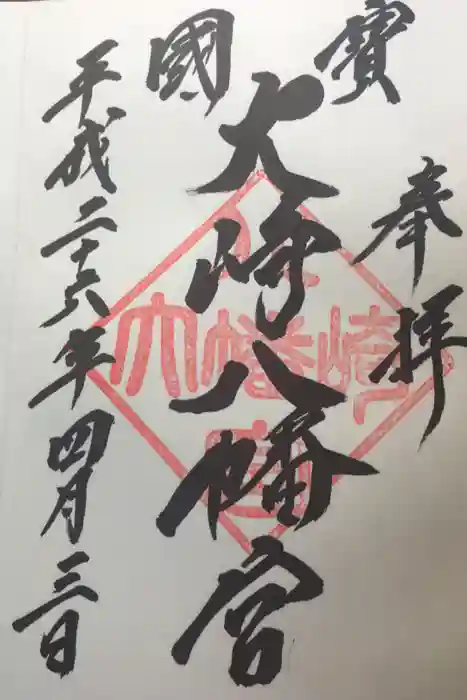 奉拝
國寶
大崎八幡宮
平成二十六年四月三日
大崎八幡宮